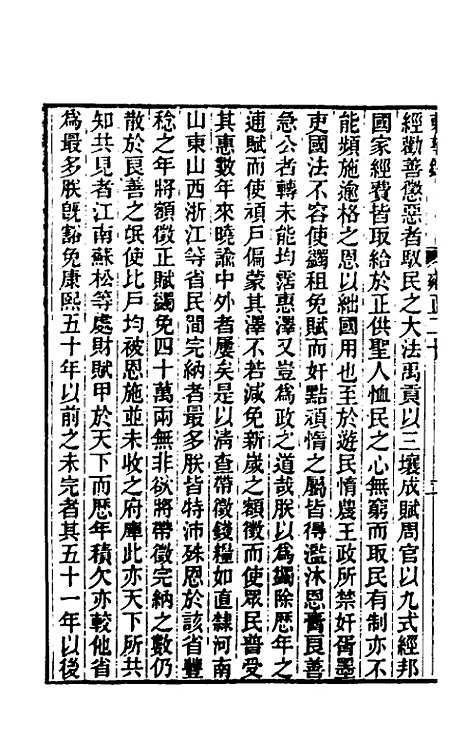 東華錄 雍正二十 二
經勸善懲惡者馭民之大法禹貢以三壤成賦周官以九式經邦
國家經費皆取給於正供聖人恤民之心無窮而取民有制亦不
能頻施逾格之恩以絀國用也至於遊民惰農王政所禁奸胥墨
吏國法不容使蠲租免賦而奸黠頑惰之屬皆得濫沐恩膏良善
急公者轉未能均霑惠澤又豈為政之道哉朕以為蠲除歷年之
逋賦而使頑戶偏蒙其澤不若減免新歲之額徵而使眾民普受
其惠數年來曉諭中外者屢矣是以清查帶徵錢糧如直隸河南
山東山西浙江等省民間完納者最多朕皆特沛殊恩於該省豐
稔之年將額徵正賦蠲免四十萬兩無非欲將帶徵完納之數仍
散於良善之氓使比戶均被恩施並未收之府庫此亦天下所共
知共見者江南蘇松等處財賦甲於天下而歷年積欠亦較他省
為最多朕旣豁免康熙五十年以前之未完者其五十一年以後